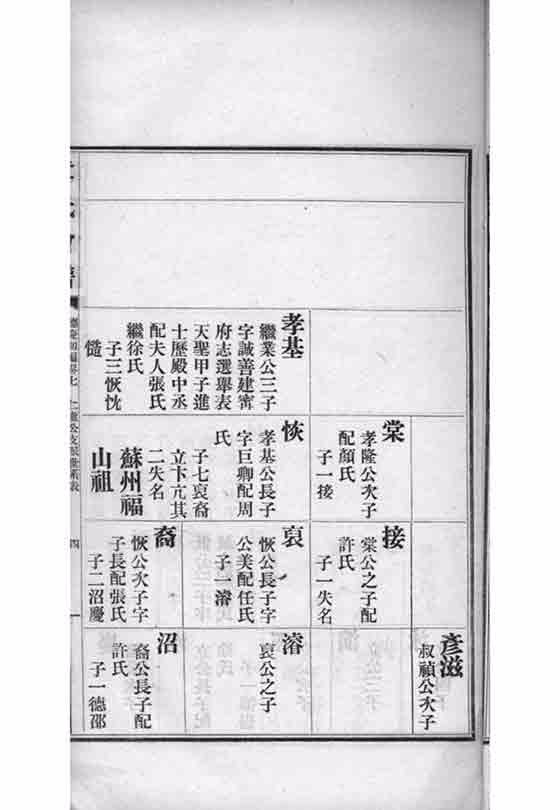 孝基
繼業公三子
字誠善建甯
府志選舉表
天聖甲子進
士歷殿中丞
配夫人張氏
繼徐氏
子三恢忱
憶
棠
孝隆公次子
配顏氏
子一接
恢
孝基公長子
字巨卿配周
氏
子七裒裔
立卞亢其
二失名
蘇州福
山祖
接
棠公之子配
許氏
子一失名
裒
恢公長子字
公美配任氏
子一濬
裔
恢公次子字
子長配張氏
子二沼慶
彥滋
叔禎公次子
濬
裒公之子
沼
裔公長子配
許氏
子一德邵
四